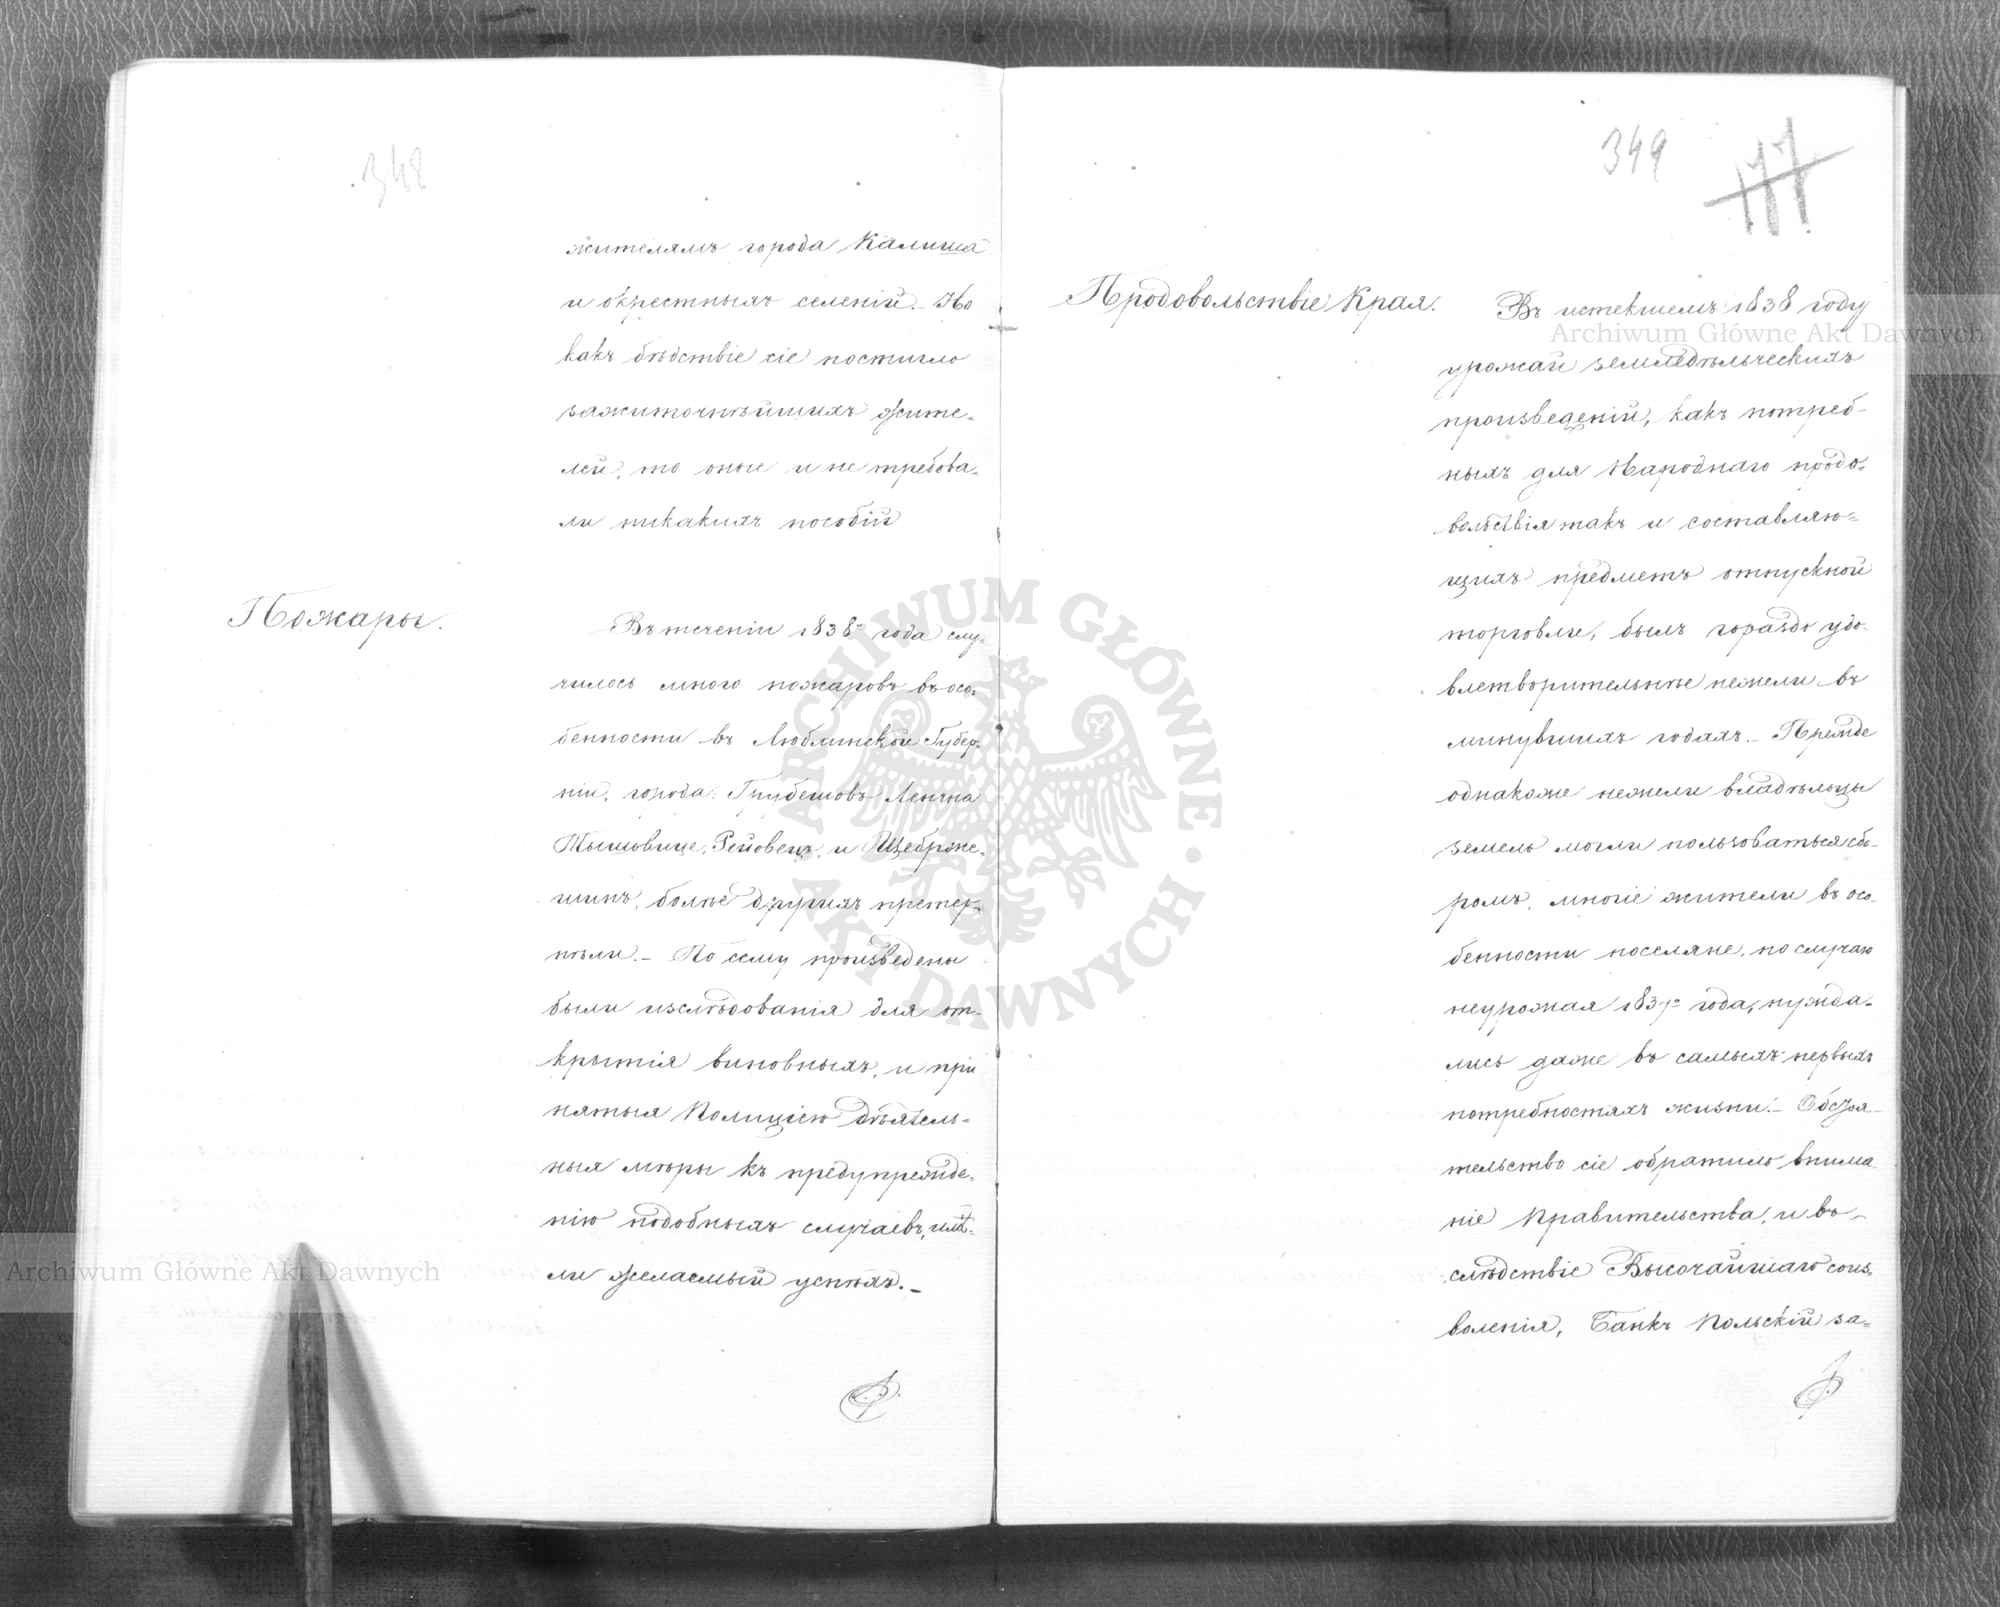 348
жителямъ города Калиша
и окрестныхъ селеній. Но
какъ бѣдствіе сіе постигло
зажиточнѣйшихъ жите-
лей, то оные и не требова-
ли никакихъ пособій
Пожары.
Въ теченіи 1838го года слу-
чилось много пожаровъ въ осо-
бенности въ Люблинской Губер-
ніи, города: Грубешовъ Ленчна
Тышовице, Рейовецъ, и Щебрже-
шинъ, болѣе другихъ претер-
пѣли. — По сему произведены
были изслѣдованія для от-
крытія виновныхъ, и при
нятыя Полиціею дѣятель-
ныя мѣры къ предупрежде-
нію подобныхъ случаевъ, имѣ-
ли желаемый успѣхъ. —
349
177
Продовольствіе Края.
Въ истекшемъ 1838 году
урожай земледѣльческихъ
произведеній, какъ потреб-
ныхъ для Народнаго продо-
вольствія такъ и составляю-
щихъ предметъ отпускной
торговли, былъ гораздо удо-
влетворительнѣе нежели въ
минувшихъ годахъ. — Прежде
однакоже нежели владѣльцы
земель могли пользоваться сбо-
ромъ, многіе жители въ осо-
бенности поселяне, по случаю
неурожая 1837го года, нужда-
лись даже въ самыхъ первыхъ
потребностяхъ жизни. — Обстоя-
тельство сіе обратило внима-
ніе Правительства, и въ-
слѣдствіе Высочайшаго соиз-
воленія, Банкъ Польскій за-
Archiwum Główne Akt Dawnych
Archiwum Główne Akt Dawnych
ARCHIWUM GŁÓWNE · AKT DAWNYCH ·